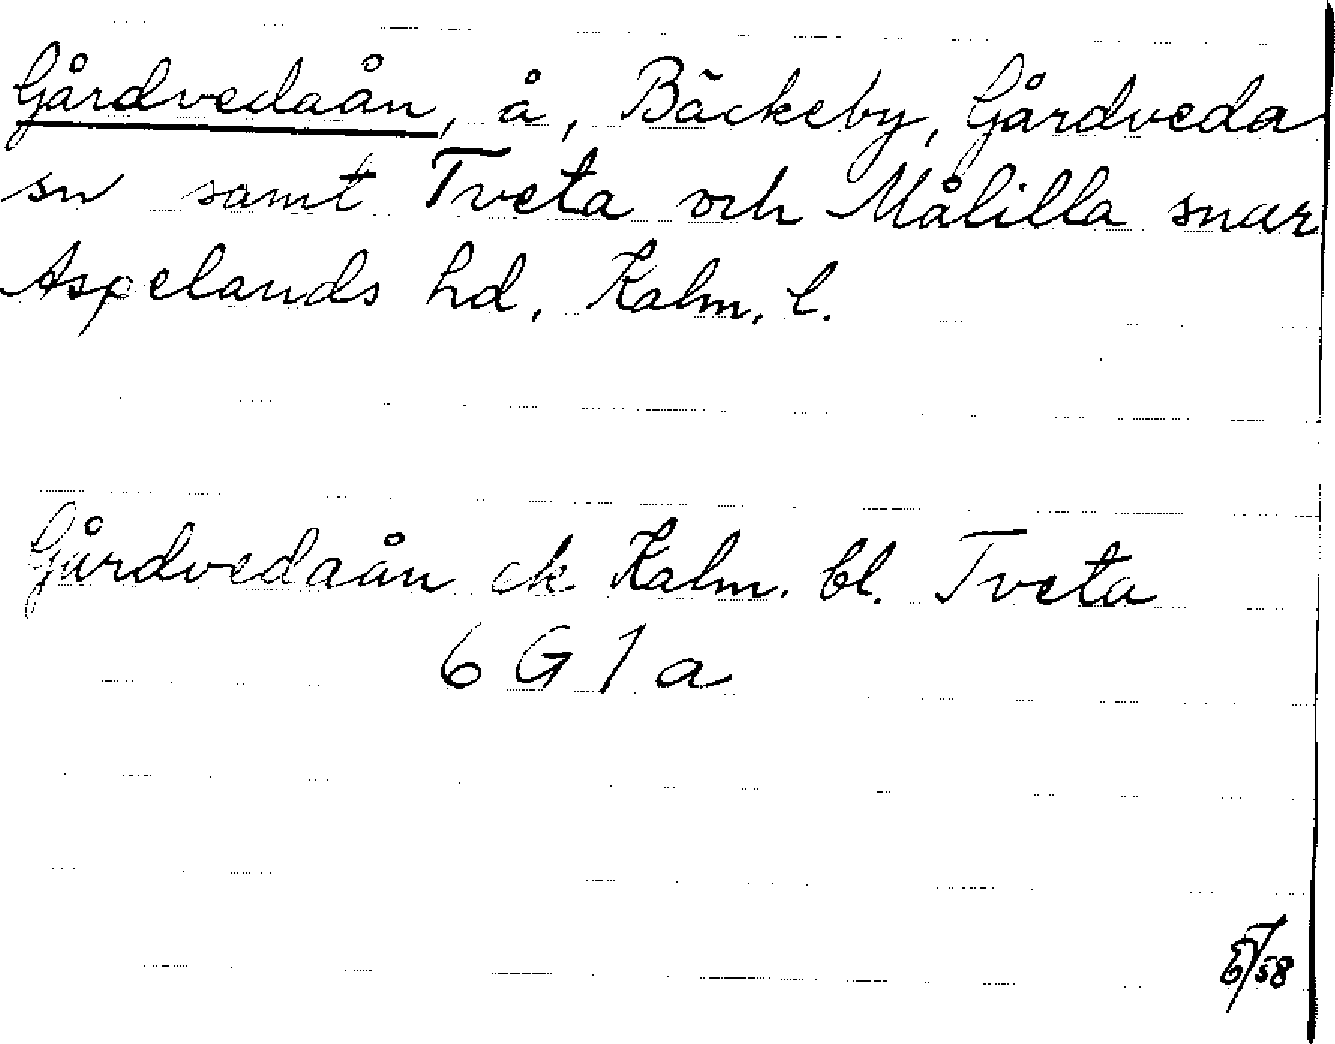 Gårdvedaån, å, Bäckeby, Gårdveda
sn samt Tveta och Målilla snar
Aspelands hd, Kalm. l.
Gårdvedaån ek Kalm. bl. Tveta
6 G 1 a